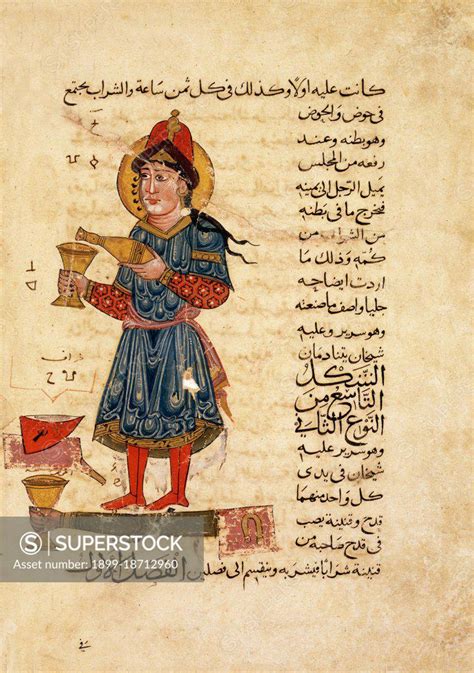 كانت عليه اولا وكذلك في كل ثمن ساعة والشراب يجتمع
في حوض والحوض
وهو بطنه وعند
رفعه من المجلس
يميل الرجل الى يمينه
فيخرج ما في بطنه
من الشراب من
كمه وذلك ما
اردت ايضاحه
جليا واصف ما صنعته
وهو سرير وعليه
شيخان يتنادمان
الشكل
التاسع من
النوع الثاني
وهو سرير وعليه
شيخان في يدى
كل واحد منهما
قدح وقنينة يصب
في قدح صاحبه من
قنينة شرابا فيشربه وينقسم الى فصلين الفصل الاول
superstock
Image ID: 1899-18712960
www.superstock.com